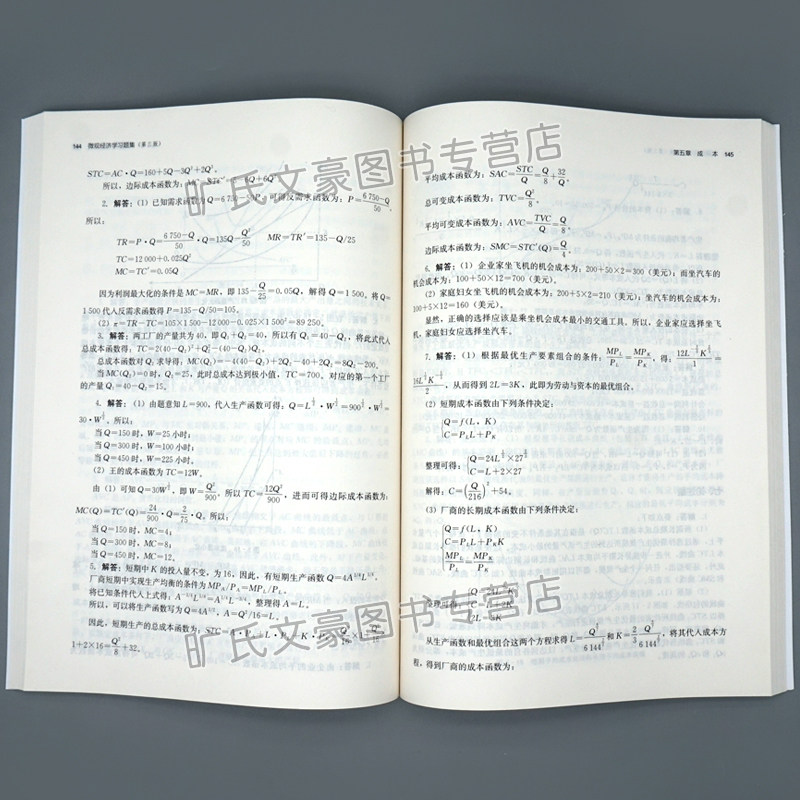 144 微观经济学习题集(第三版)
STC=AC·Q=160+5Q-3Q²+2Q³。
所以,边际成本函数为:
2. 解答:(1) 已知需求函数为Q=6 750-50P,可得反需求函数为:P=(6 750-Q)/50,
所以:
TR=P·Q=(6 750-Q)/50·Q=135Q-Q²/50 MR=TR′=135-Q/25
TC=12 000+0.025Q²
MC=TC′=0.05Q
因为利润最大化的条件是MC=MR,即135-Q/25=0.05Q,解得Q=1 500。将Q=
1 500代入反需求函数得P=135-Q/50=105。
(2) π=TR-TC=105×1 500-12 000-0.025×1 500²=89 250。
3. 解答:两工厂的产量共为40,即Q₁+Q₂=40,所以有Q₁=40-Q₂,将此式代入
总成本函数得:TC=2(40-Q₂)²+Q₂²-(40-Q₂)Q₂。
总成本函数对Q₂求导得:MC(Q₂)=-4(40-Q₂)+2Q₂-40+2Q₂=8Q₂-200。
当MC(Q₂)=0时,Q₂=25,此时总成本达到极小值,TC=700。对应的第一个工厂
的产量Q₁=40-Q₂=15。
4. 解答:(1) 由题意知L=900,代入生产函数可得:Q=L^(1/2)·W^(1/2)=900^(1/2)·W^(1/2)=
30·W^(1/2)。所以:
当Q=150时,W=25小时;
当Q=300时,W=100小时;
当Q=450时,W=225小时。
(2) 王的成本函数为TC=12W。
由(1)可知Q=30W^(1/2),即W=Q²/900,所以TC=12Q²/900,进而可得边际成本函数为:
MC(Q)=TC′(Q)=24/900·Q=2/75·Q。所以:
当Q=150时,MC=4;
当Q=300时,MC=8;
当Q=450时,MC=12。
5. 解答:短期中K的投入量不变,为16,因此,有短期生产函数Q=4A^(1/4)L^(1/4)。
厂商短期中实现生产均衡的条件为MP_A/P_A=MP_L/P_L。
将已知条件代入上式得:
整理得A=L。
所以,可以将生产函数写为Q=4A^(1/2),A=Q²/16=L。
因此,短期生产的总成本函数为:STC=
1+2×16=Q²/8+32。
第五章 成 本 145
平均成本函数为:SAC=STC/Q=Q/8+32/Q。
总可变成本函数为:TVC=Q²/8。
平均可变成本函数为:AVC=TVC/Q=Q/8。
边际成本函数为:SMC=STC′(Q)=Q/4。
6. 解答:(1) 企业家坐飞机的机会成本为:200+50×2=300(美元);而坐汽车的
机会成本为:100+50×12=700(美元)。
(2) 家庭妇女坐飞机的机会成本为:200+5×2=210(美元);坐汽车的机会成本为:
100+5×12=160(美元)。
显然,正确的选择应该是乘坐机会成本最小的交通工具。所以,企业家应选择坐飞
机,家庭妇女应选择坐汽车。
7. 解答:(1) 根据最优生产要素组合的条件:MP_L/P_L=MP_K/P_K,得:
从而得到2L=3K,此即为劳动与资本的最优组合。
(2) 短期成本函数由下列条件决定:
Q=f(L,K)
C=P_L L+P_K K
整理可得:Q=24L^(1/2)×27^(2/3)
C=L+2×27
解得:C=(Q/216)²+54。
(3) 厂商的长期成本函数由下列条件决定:
Q=f(L,K)
C=P_L L+P_K K
MP_L/P_L=MP_K/P_K
整理可得:
从生产函数和最优组合这两个方程求得
将其代入成本方
程,得到厂商的成本函数为:
旷氏文豪图书专营店
旷氏文豪图书专营店